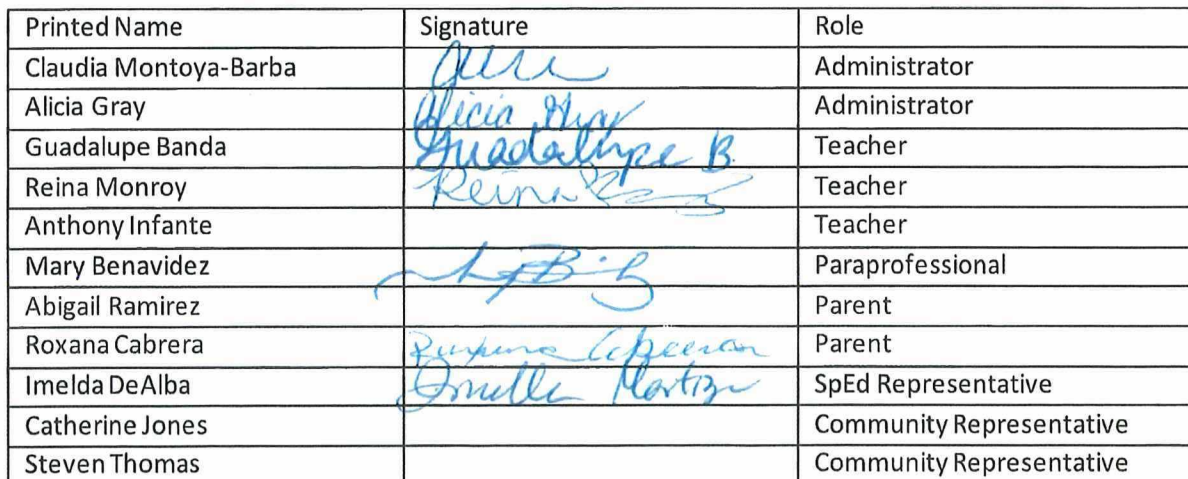 Printed Name Signature Role
Claudia Montoya-Barba Administrator
Alicia Gray Alicia Gray Administrator
Guadalupe Banda Guadalupe B. Teacher
Reina Monroy Reina Teacher
Anthony Infante Teacher
Mary Benavidez Paraprofessional
Abigail Ramirez Parent
Roxana Cabrera Parent
Imelda DeAlba SpEd Representative
Catherine Jones Community Representative
Steven Thomas Community Representative